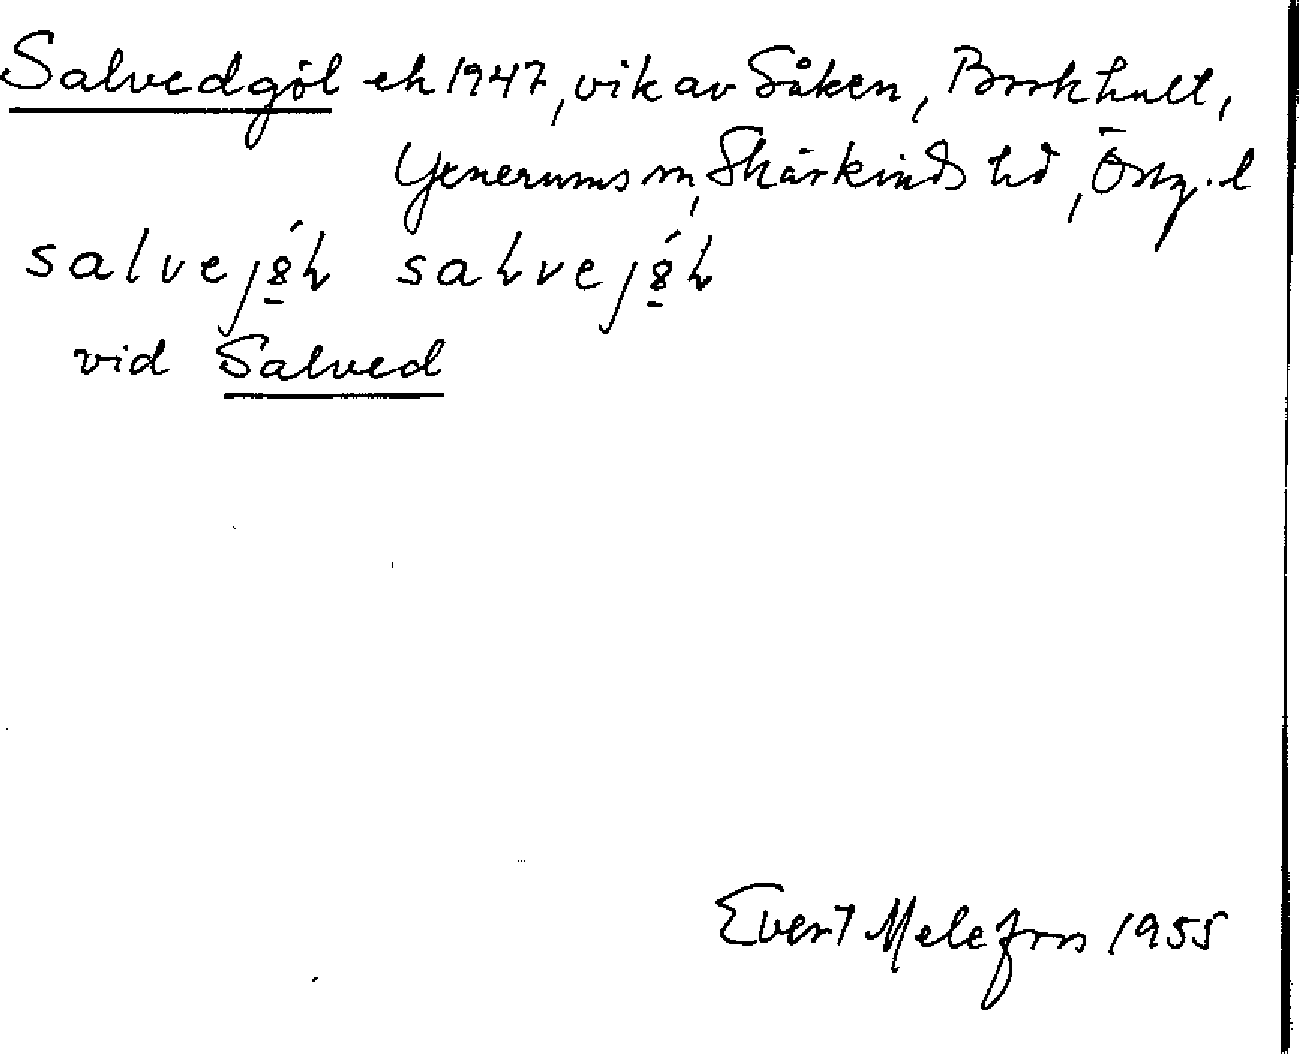 Salvedgöl ek 1947, vik av Såken, Borkhult,
Yxnerums sn, Skärkinds hd, Östg. l
vid Salved
Evert Melefors 1955